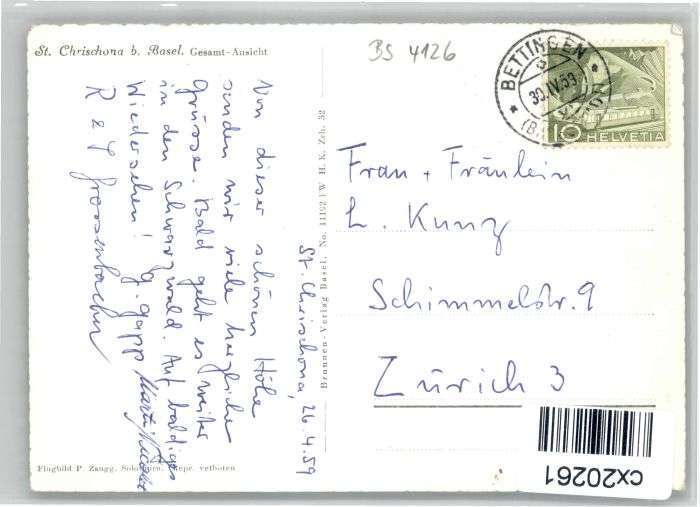 St. Chrischona b. Basel. Gesamt-Ansicht
BS 4126
St. Chrischona, 26.4.59
Von dieser schönen Höhe
senden wir viele herzliche
Grüsse. Bald geht es weiter
in den Schwarzwald. Auf baldiges
Wiedersehen! G. Gapp
R & Y Grossenbacher
Brunnen-Verlag Basel, No. 11192 W H. K. Zch. 32
BETTINGEN
30.IV.59
10 HELVETIA
Frau + Fräulein
L. Kunz
Schimmelstr. 9
Zürich 3
Flugbild P. Zaugg, Solothurn. Repr. verboten
cx20261